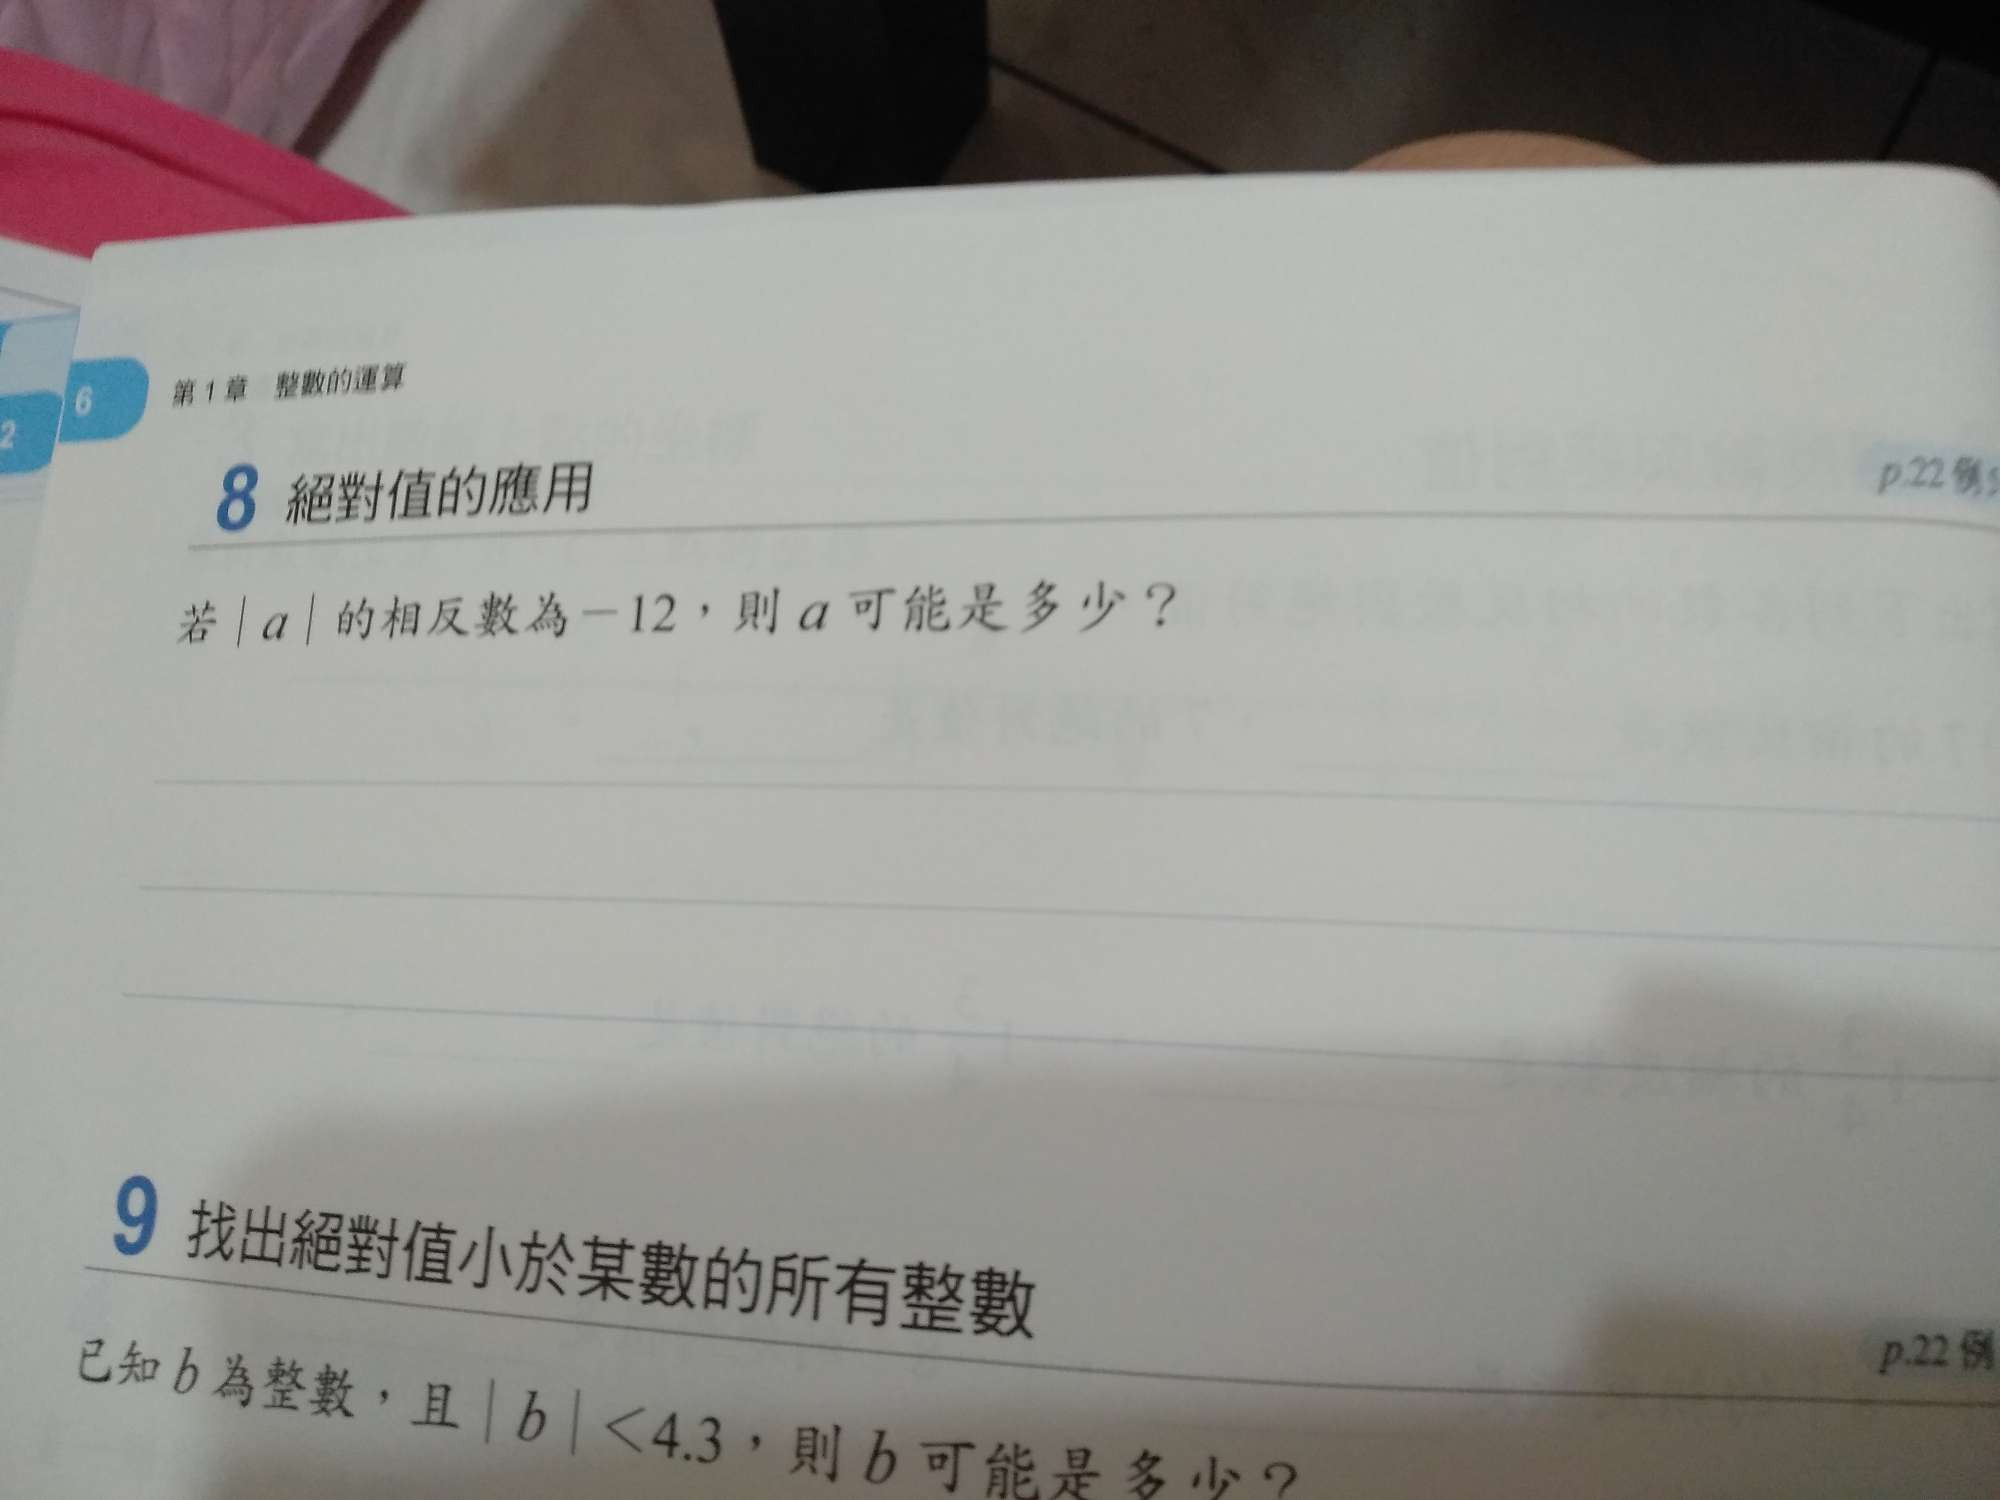 2
6
第1章 整數的運算
8 絕對值的應用
p.22 例
若|a|的相反數為－12，則 a 可能是多少？
9 找出絕對值小於某數的所有整數
p.22 例
已知 b 為整數，且|b|＜4.3，則 b 可能是多少？